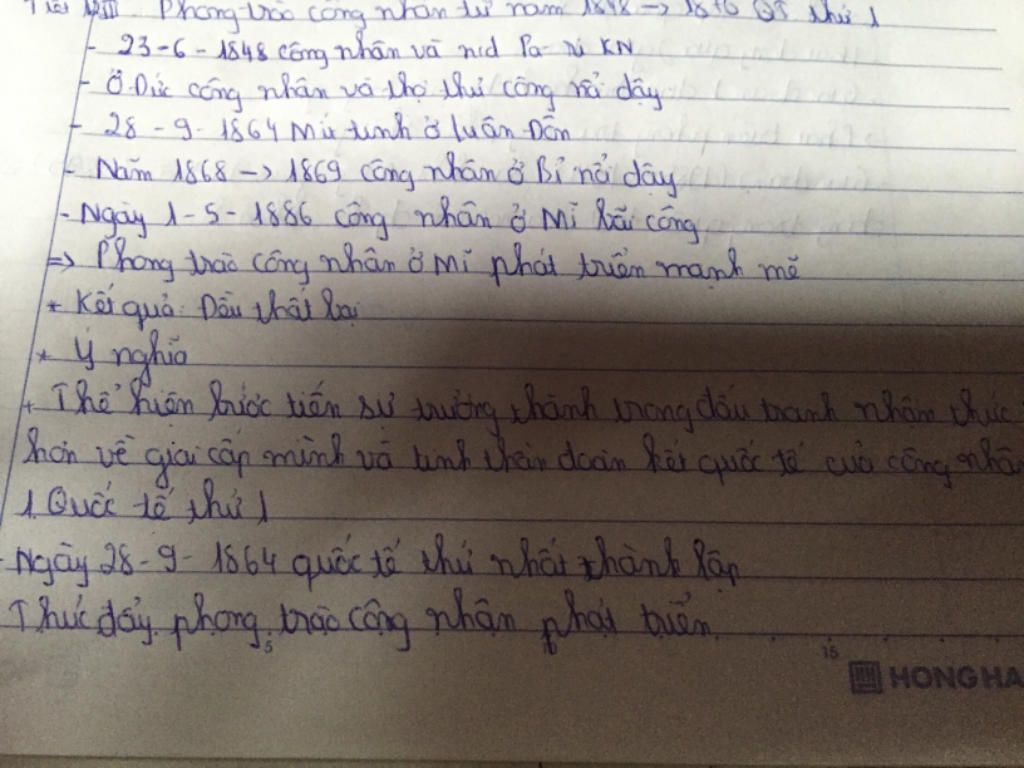 Phong trào công nhân từ năm 1848 -> 1870 QT thứ 1
- 23-6-1848 công nhân và nd Pa-ri KN
- Ở Đức công nhân và thợ thủ công nổi dậy
- 28-9-1864 Mít tinh ở Luân Đôn
- Năm 1868 -> 1869 công nhân ở Bỉ nổi dậy
- Ngày 1-5-1886 công nhân ở Mĩ bãi công
=> Phong trào công nhân ở Mĩ phát triển mạnh mẽ
* Kết quả: Đều thất bại
* Ý nghĩa
+ Thể hiện bước tiến sự trưởng thành trong đấu tranh nhận thức
hơn về giai cấp mình và tinh thần đoàn kết quốc tế của công nhân
1. Quốc tế thứ 1
- Ngày 28-9-1864 quốc tế thứ nhất thành lập
Thúc đẩy phong trào công nhân phát triển
5 15
HONG HA